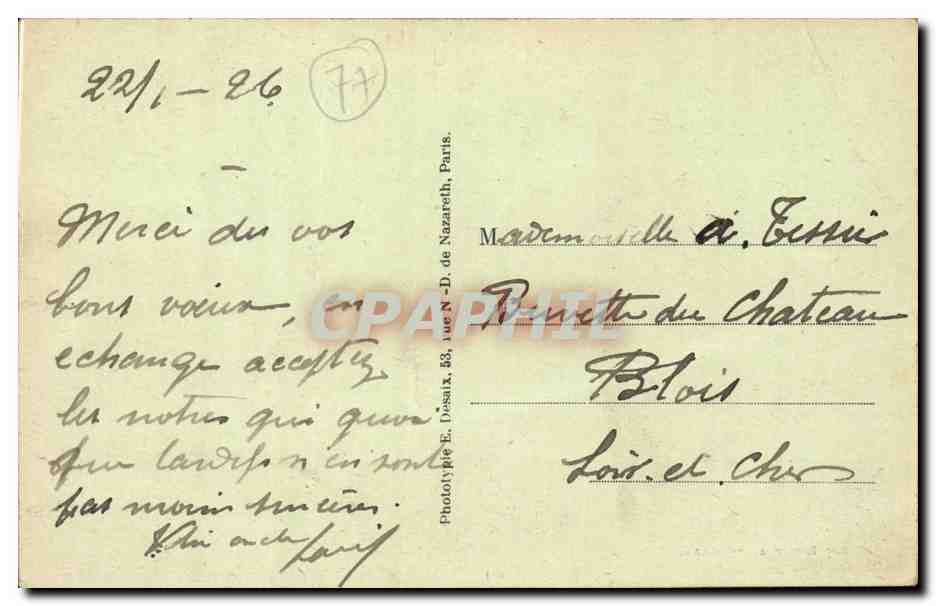 22/1-26
77
Merci des vos
bons voeux, en
echange acceptez
les notres qui quoi
que tardifs n'en sont
pas moins sincères.
Phototypie E. Desaix, 53, rue N.-D. de Nazareth, Paris.
Mademoiselle A. Tessier
Buvette du Chateau
Blois
Loir-et-Cher
CPAPHIL